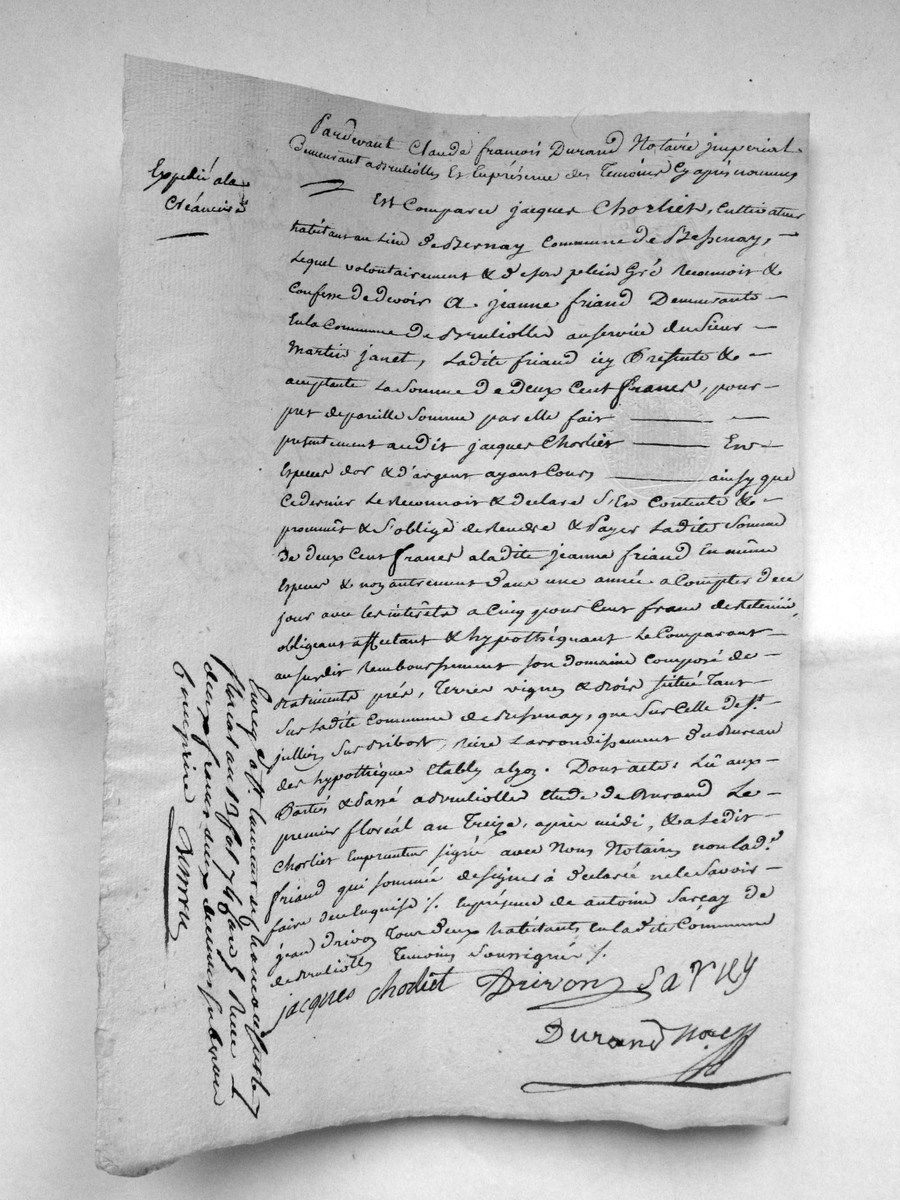 Expedié a la
Créanciere
Pardevant Claude françois Durand Notaire jmperial
Demeurant a Brulliolles Et En présence des Temoins Cy après nommés
Est Comparu jacques Chorliet, Cultivateur
habitant au Lieu de Bernay Commune de Bessenay,
Lequel volontairement & de son plein Gré Reconnoit &
Confesse devoir A jeanne friand Demeurante
En la Commune de Brulliolle au service du sieur
Martin janet, Ladite friand icy Présente &
acceptante La Somme De deux Cent francs, pour
pret de pareille Somme par elle fait
présentement audit jacques Chorliet En
Especes d'or & d'argent ayant Cours ainsy que
Ce dernier Le Reconnoit & déclare s'En Contente &
promet & s'oblige de Rendre & Payer Ladite Somme
de deux Cent francs a ladite jeanne friand En même
Especes & non autrement dans une année a Compter de ce
jour avec les intérêts a Cinq pour Cent franc de Retenue,
obligeant affectant & hypothéquant Le Comparant
au susdit Remboursement son domaine composé de
Batiments prés, Terres vignes & Bois situé Tant
Sur Ladite Commune de Bessenay, que Sur Celle de St.
jullien Sur Bibost, Rière L'arrondissement du Bureau
des hypothéque Etably a Lyon. Dont acte: Lû aux
Parties & Passé a Brulliolles Etude de Durand Le
premier floréal an Treize, après midi, & a Ledit
Chorliet Emprunteur signé avec Nous Notaire non lad.
friand qui sommée de signer à déclaré ne le Savoir
faire de ce Enquise /. En présence de antoine Sarcay &
jean Drivon Tous deux habitants En ladite Commune
de Brulliolles Temoins Soussignés /.
jacques chorliet Drivon Sarcey
Durand Nore
floréal an 13 fol 76
deux francs deux decimes subvention
y comprise